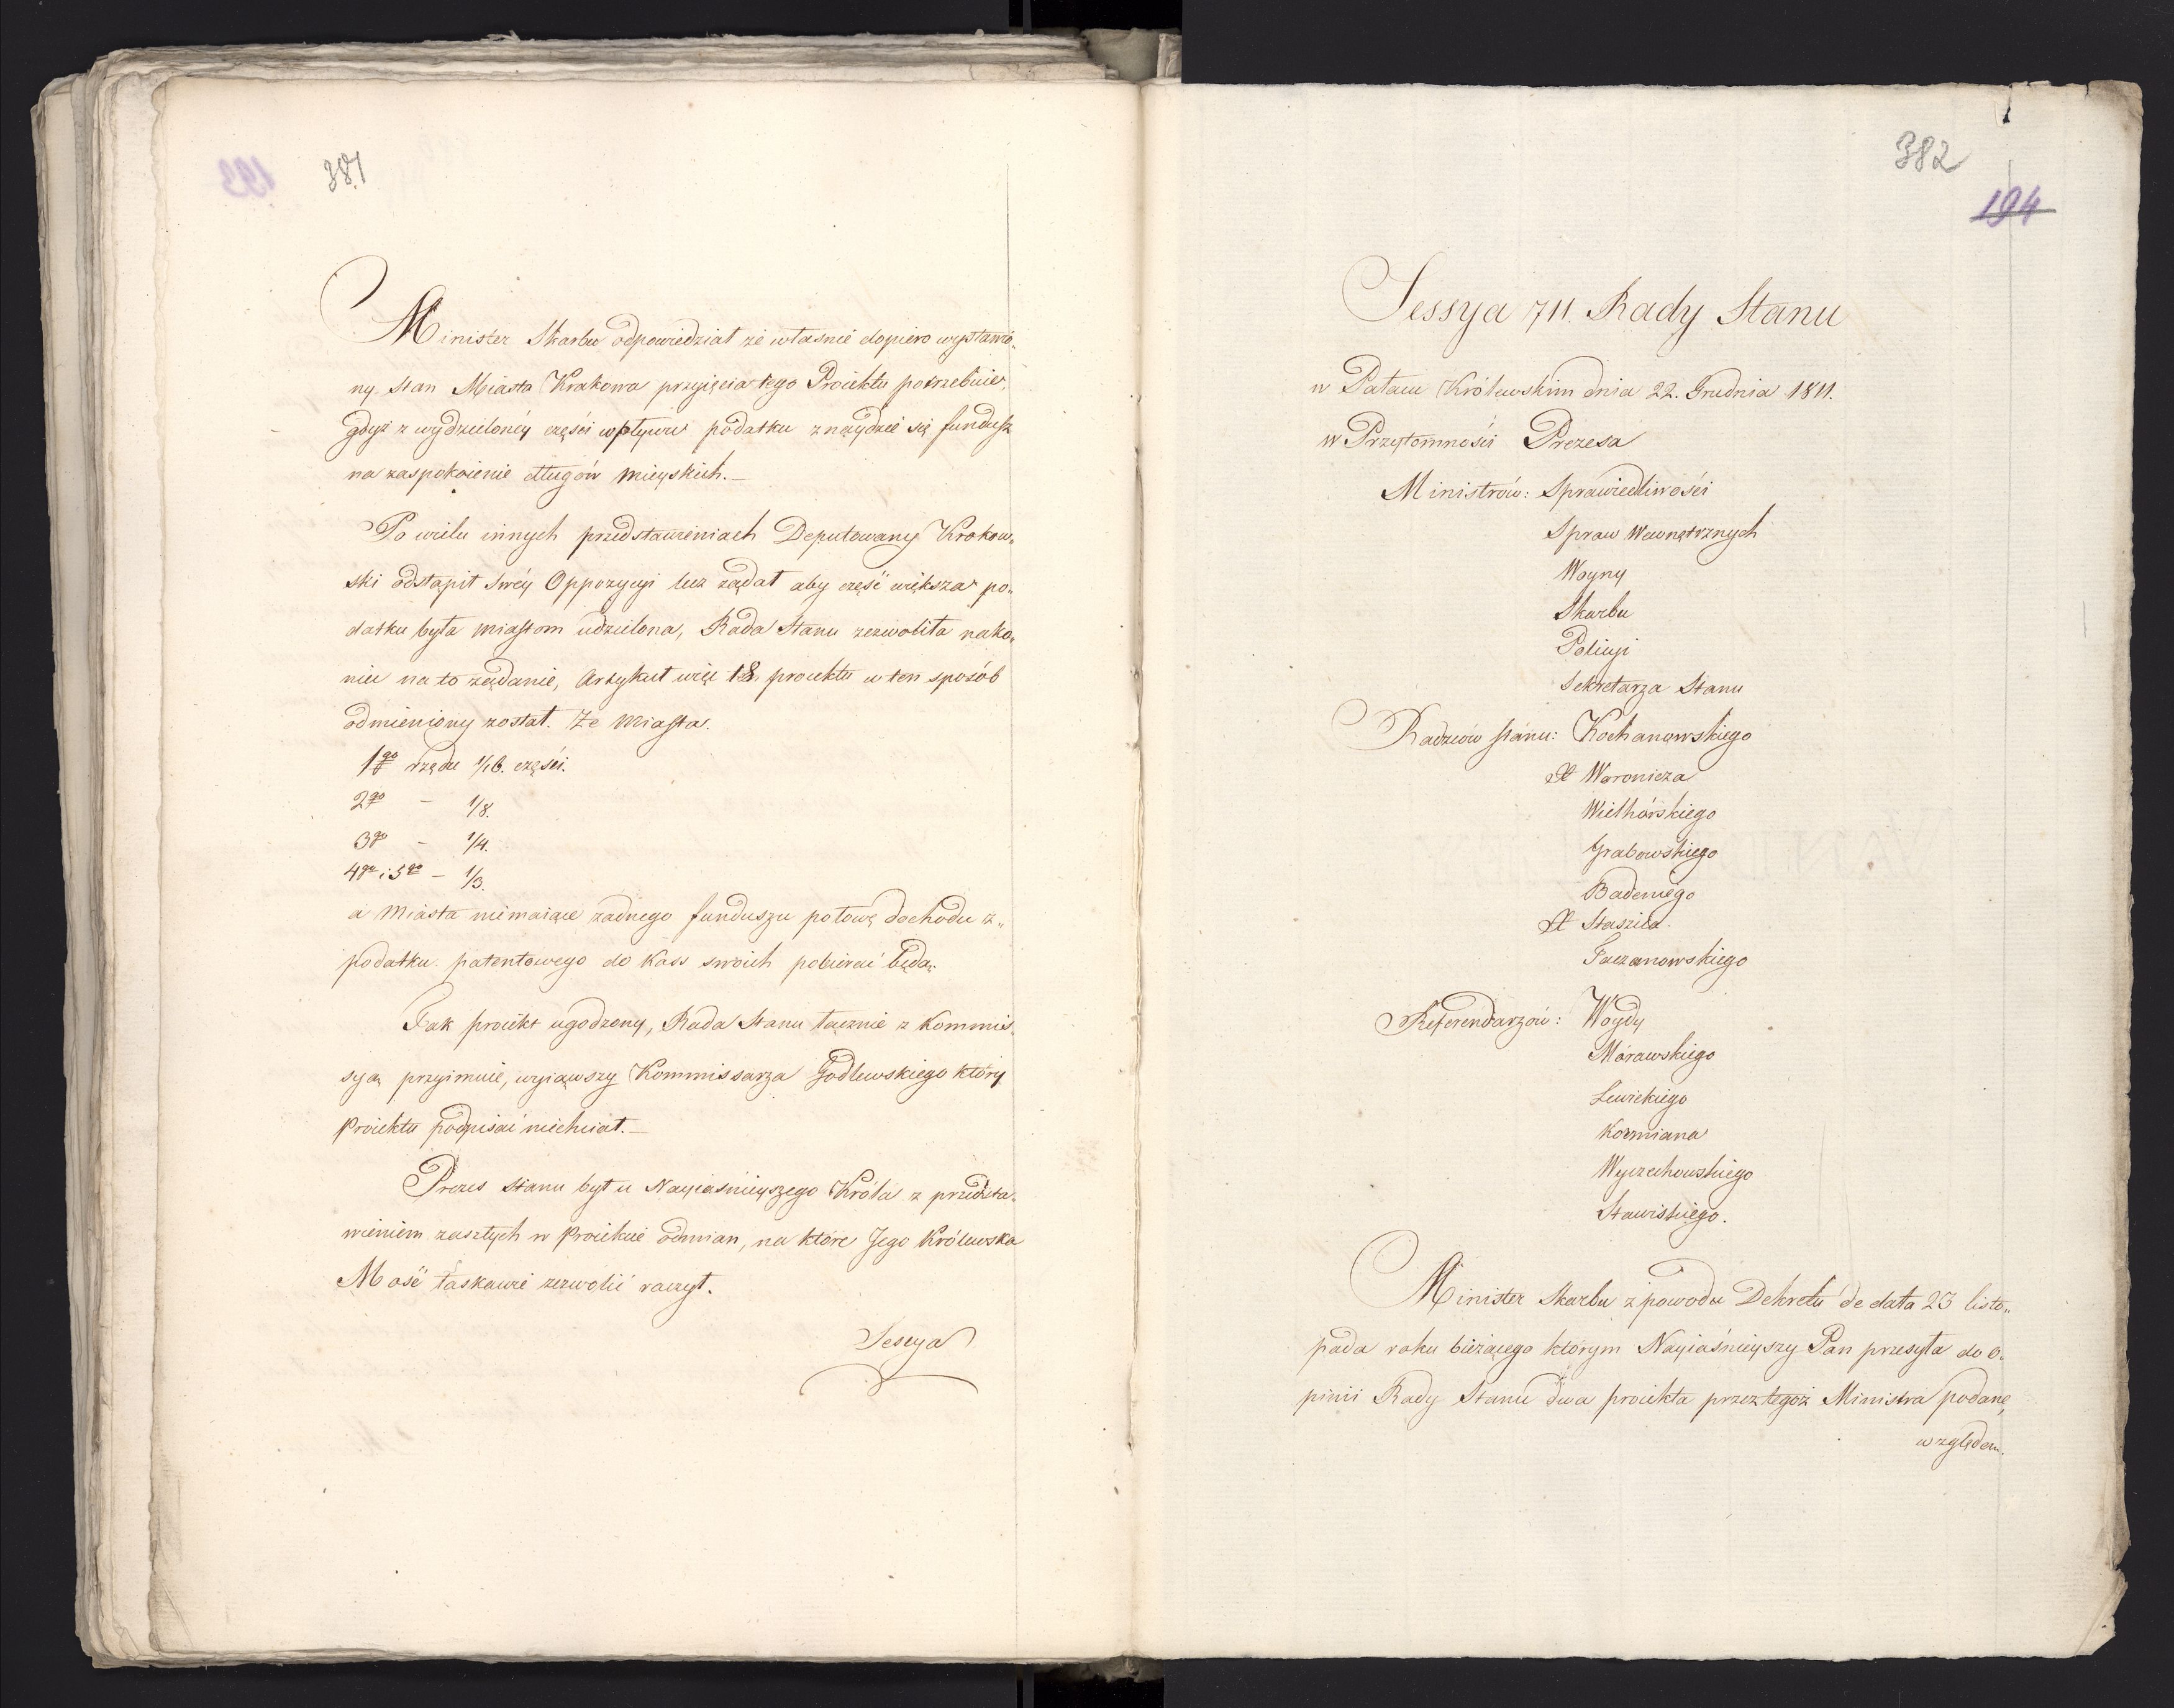 381
Minister Skarbu odpowiedział że własnie dopiero wystawio„
ny stan Miasta Krakowa przyięcia tego Proiektu potrzebuie,
gdyż z wydzielonéy części wpływu podatku znaydzie się fundusz
na zaspokoienie długów mieyskich.—
Po wielu innych przedstawieniach Deputowany Krakow„
ski odstąpił swéy Oppozycyi lecz żądał aby część większa po„
datku była miastom udzielona, Rada Stanu zezwoliła nako„
niec na to żądanie, Artykuł więc 18 proiektu w ten sposób
odmieniony został. Że miasta.
1go rzędu 1/16. części.
2go — 1/8.
3go — 1/4.
4go i 5go — 1/3.
a miasta niemaiące żadnego funduszu połowę dochodu z„
podatku patentowego do kass swoich pobierać będą.
Tak proiekt ugodzony, Rada Stanu łącznie z Kommis„
syą przyimuie, wyiąwszy Kommissarza Godlewskiego który
Proiektu podpisać niechciał.—
Prezes Stanu był u Nayiaśnieyszego Króla z przedsta„
wieniem zaszłych w Proiekcie odmian, na które Jego Królewska
Mość łaskawie zezwolić raczył.
Sessya
382
194
Sessya 711. Rady Stanu
w Pałacu Królewskim dnia 22. Grudnia 1811.
w Przytomności Prezesa
Ministrów: Sprawiedliwości
Spraw Wewnętrznych
Woyny
Skarbu
Policyi
Sekretarza Stanu
Radzców stanu: Kochanowskiego
X Woronicza
Wielhórskiego
Grabowskiego
Badeniego
X Staszica
Taczanowskiego
Referendarzów: Woydy
Morawskiego
Lewickiego
Kozmiana
Wyczechowskiego
Stawiskiego.
Minister Skarbu z powodu Dekretu de data 23 listo„
pada roku bieżącego którym Nayiaśnieyszy Pan przesyła do o„
pinii Rady Stanu dwa proiekta przez tegoż Ministra podane,
względem.